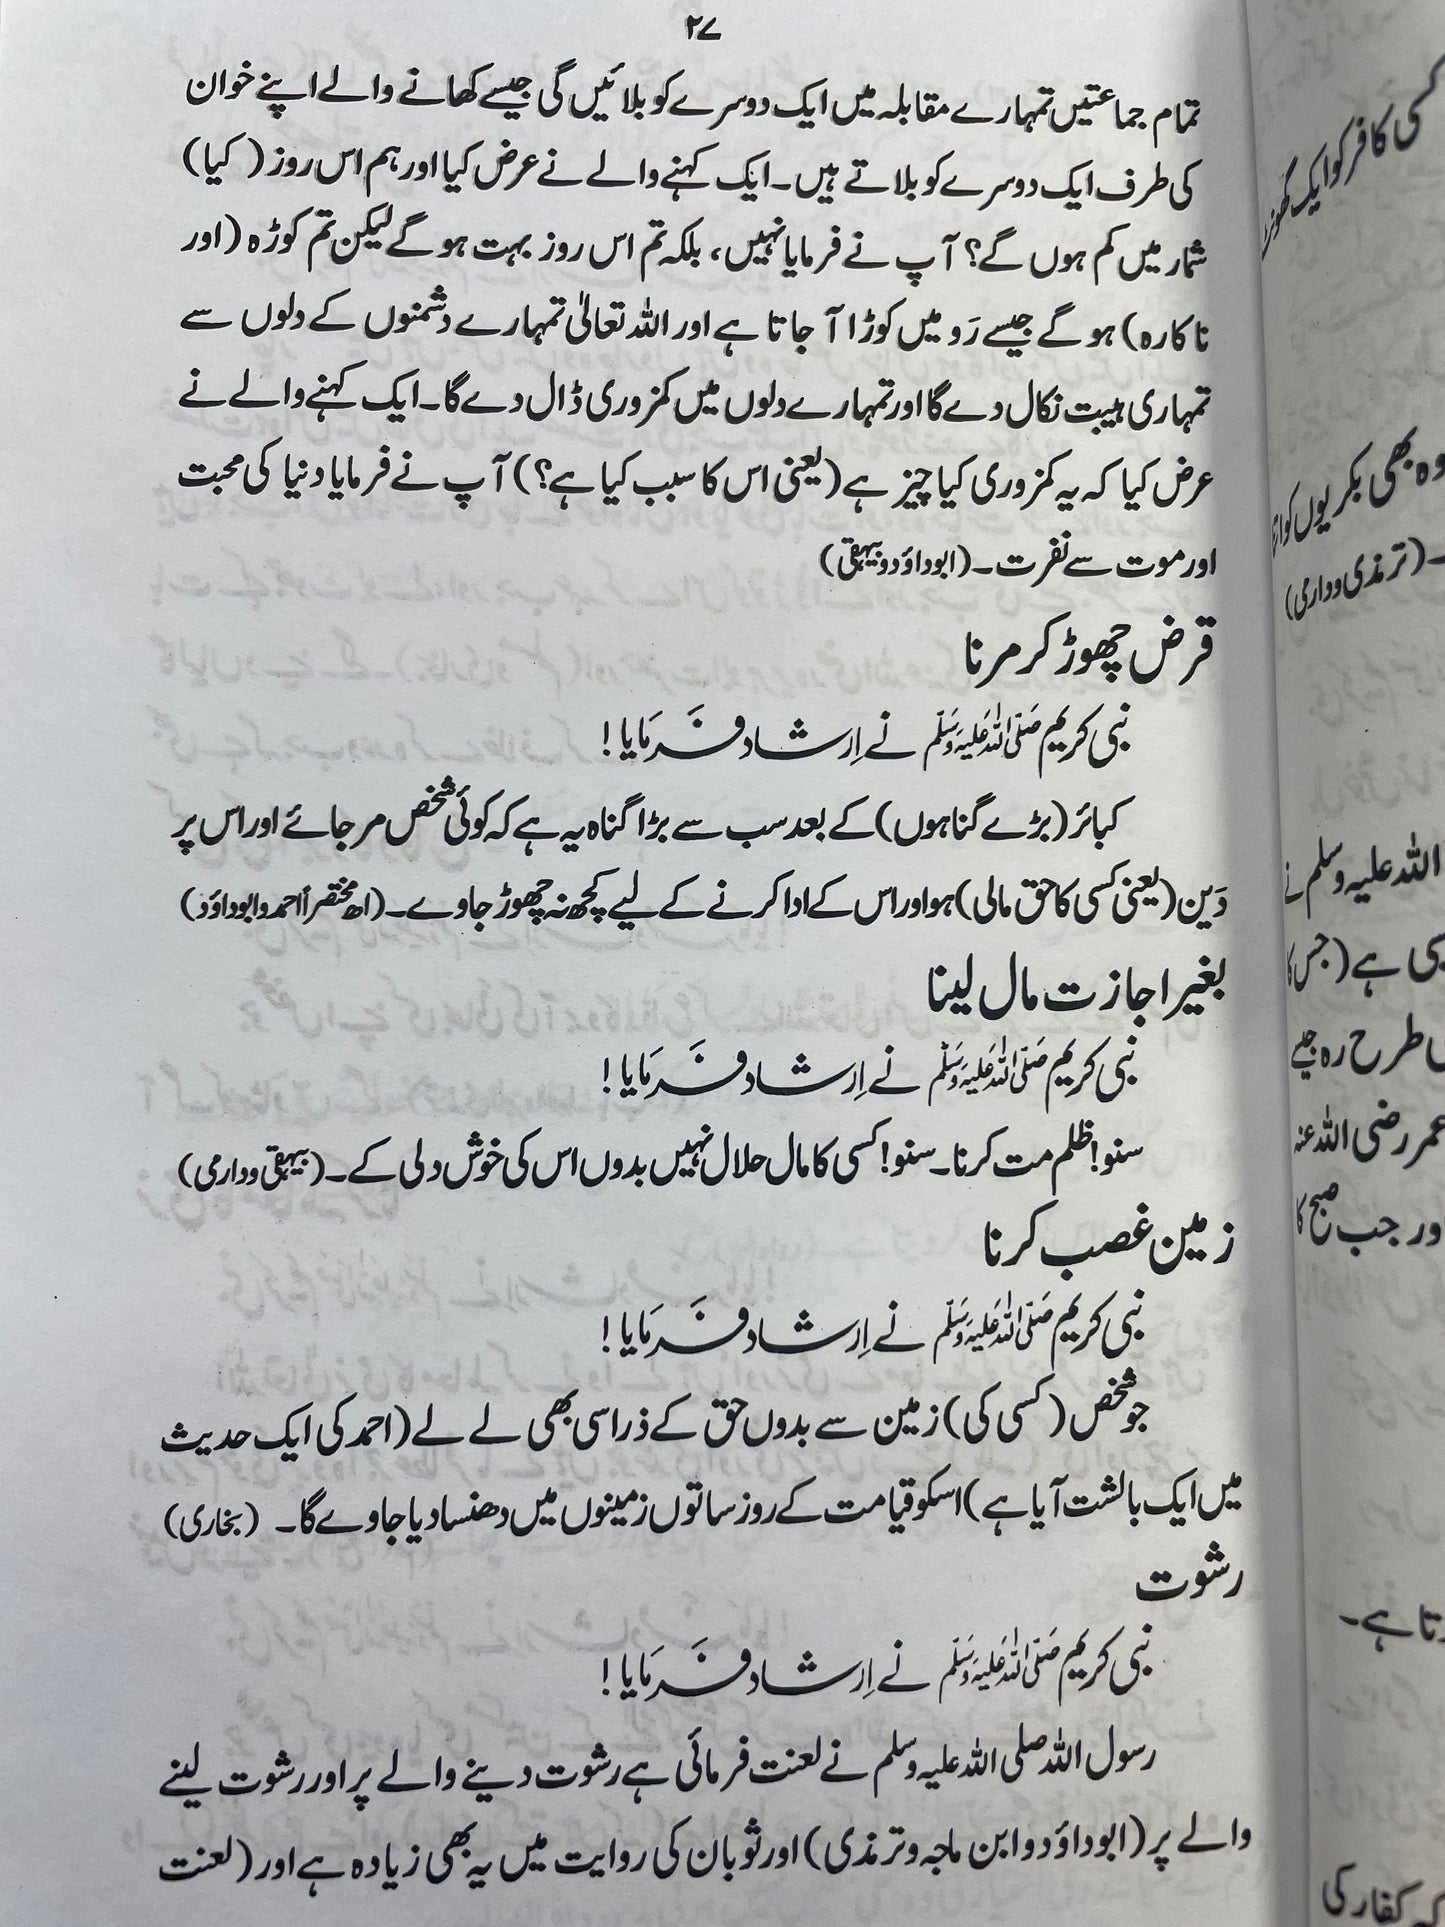 ۲۷
تمام جماعتیں تمہارے مقابلہ میں ایک دوسرے کو بلائیں گی جیسے کھانے والے اپنے خوان
کی طرف ایک دوسرے کو بلاتے ہیں۔ ایک کہنے والے نے عرض کیا اور ہم اس روز (کیا)
شمار میں کم ہوں گے؟ آپ نے فرمایا نہیں، بلکہ تم اس روز بہت ہو گے لیکن تم کوڑہ (اور
ناکارہ) ہو گے جیسے رَو میں کوڑا آ جاتا ہے اور اللہ تعالیٰ تمہارے دشمنوں کے دلوں سے
تمہاری ہیبت نکال دے گا اور تمہارے دلوں میں کمزوری ڈال دے گا۔ ایک کہنے والے نے
عرض کیا کہ یہ کمزوری کیا چیز ہے (یعنی اس کا سبب کیا ہے؟) آپ نے فرمایا دنیا کی محبت
اور موت سے نفرت۔ (ابوداؤد و بیہقی)
قرض چھوڑ کر مرنا
نبی کریم صَلَّی اللّٰہُ عَلَیْہِ وَسَلَّم نے اِرشاد فَرمَایا!
کبائر (بڑے گناہوں) کے بعد سب سے بڑا گناہ یہ ہے کہ کوئی شخص مر جائے اور اس پر
دَین (یعنی کسی کا حق مالی) ہو اور اس کے ادا کرنے کے لیے کچھ نہ چھوڑ جاوے۔ (اھ مختصراً احمد و ابوداؤد)
بغیر اجازت مال لینا
نبی کریم صَلَّی اللّٰہُ عَلَیْہِ وَسَلَّم نے اِرشاد فَرمَایا!
سنو! ظلم مت کرنا۔ سنو! کسی کا مال حلال نہیں بدوں اس کی خوش دلی کے۔ (بیہقی و دارمی)
زمین غصب کرنا
نبی کریم صَلَّی اللّٰہُ عَلَیْہِ وَسَلَّم نے اِرشاد فَرمَایا!
جو شخص (کسی کی) زمین سے بدوں حق کے ذرا سی بھی لے لے (احمد کی ایک حدیث
میں ایک بالشت آیا ہے) اسکو قیامت کے روز ساتوں زمینوں میں دھنسا دیا جاوے گا۔ (بخاری)
رشوت
نبی کریم صَلَّی اللّٰہُ عَلَیْہِ وَسَلَّم نے اِرشاد فَرمَایا!
رسول اللہ صلی اللہ علیہ وسلم نے لعنت فرمائی ہے رشوت دینے والے پر اور رشوت لینے
والے پر (ابوداؤد و ابن ماجہ و ترمذی) اور ثوبان کی روایت میں یہ بھی زیادہ ہے اور (لعنت
کسی کافر کو ایک
وہ بھی بکریوں کو
۔ (ترمذی و دارمی)
اللہ علیہ وسلم نے
ہے (جس کا
طرح رہ جیسے
عمر رضی اللہ عنہ
اور جب صبح کا
ہے۔
کفار کی